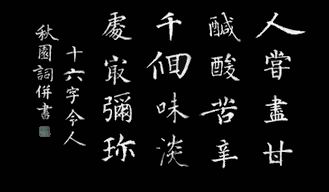 人嘗盡甘
醎酸苦辛
千佪味淡
處㝡彌珎
十六字令人
秋園詞併書